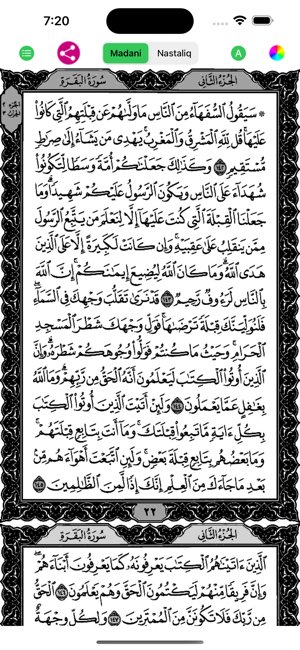 7:20
Madani
Nastaliq
A
سُورَةُ الْبَقَرَة
الجُزءُ الثَّانِي
الجزء ٢
الحزب ٣
۞ سَيَقُولُ السُّفَهَاءُ مِنَ النَّاسِ مَا وَلَّىٰهُمْ عَن قِبْلَتِهِمُ الَّتِي كَانُوا
عَلَيْهَا قُل لِّلَّهِ الْمَشْرِقُ وَالْمَغْرِبُ يَهْدِي مَن يَشَاءُ إِلَىٰ صِرَاطٍ
مُّسْتَقِيمٍ ١٤٢ وَكَذَٰلِكَ جَعَلْنَاكُمْ أُمَّةً وَسَطًا لِّتَكُونُوا
شُهَدَاءَ عَلَى النَّاسِ وَيَكُونَ الرَّسُولُ عَلَيْكُمْ شَهِيدًا وَمَا
جَعَلْنَا الْقِبْلَةَ الَّتِي كُنتَ عَلَيْهَا إِلَّا لِنَعْلَمَ مَن يَتَّبِعُ الرَّسُولَ
مِمَّن يَنقَلِبُ عَلَىٰ عَقِبَيْهِ وَإِن كَانَتْ لَكَبِيرَةً إِلَّا عَلَى الَّذِينَ
هَدَى اللَّهُ وَمَا كَانَ اللَّهُ لِيُضِيعَ إِيمَٰنَكُمْ إِنَّ اللَّهَ
بِالنَّاسِ لَرَءُوفٌ رَّحِيمٌ ١٤٣ قَدْ نَرَىٰ تَقَلُّبَ وَجْهِكَ فِي السَّمَاءِ
فَلَنُوَلِّيَنَّكَ قِبْلَةً تَرْضَىٰهَا فَوَلِّ وَجْهَكَ شَطْرَ الْمَسْجِدِ
الْحَرَامِ وَحَيْثُ مَا كُنتُمْ فَوَلُّوا وُجُوهَكُمْ شَطْرَهُ وَإِنَّ
الَّذِينَ أُوتُوا الْكِتَٰبَ لَيَعْلَمُونَ أَنَّهُ الْحَقُّ مِن رَّبِّهِمْ وَمَا اللَّهُ
بِغَٰفِلٍ عَمَّا يَعْمَلُونَ ١٤٤ وَلَئِنْ أَتَيْتَ الَّذِينَ أُوتُوا الْكِتَٰبَ
بِكُلِّ ءَايَةٍ مَّا تَبِعُوا قِبْلَتَكَ وَمَا أَنتَ بِتَابِعٍ قِبْلَتَهُمْ
وَمَا بَعْضُهُم بِتَابِعٍ قِبْلَةَ بَعْضٍ وَلَئِنِ اتَّبَعْتَ أَهْوَاءَهُم مِّن
بَعْدِ مَا جَاءَكَ مِنَ الْعِلْمِ إِنَّكَ إِذًا لَّمِنَ الظَّٰلِمِينَ ١٤٥
٢٢
سُورَةُ الْبَقَرَة
الجُزءُ الثَّانِي
الَّذِينَ ءَاتَيْنَٰهُمُ الْكِتَٰبَ يَعْرِفُونَهُ كَمَا يَعْرِفُونَ أَبْنَاءَهُمْ
وَإِنَّ فَرِيقًا مِّنْهُمْ لَيَكْتُمُونَ الْحَقَّ وَهُمْ يَعْلَمُونَ ١٤٦ الْحَقُّ
مِن رَّبِّكَ فَلَا تَكُونَنَّ مِنَ الْمُمْتَرِينَ ١٤٧ وَلِكُلٍّ وِجْهَةٌ